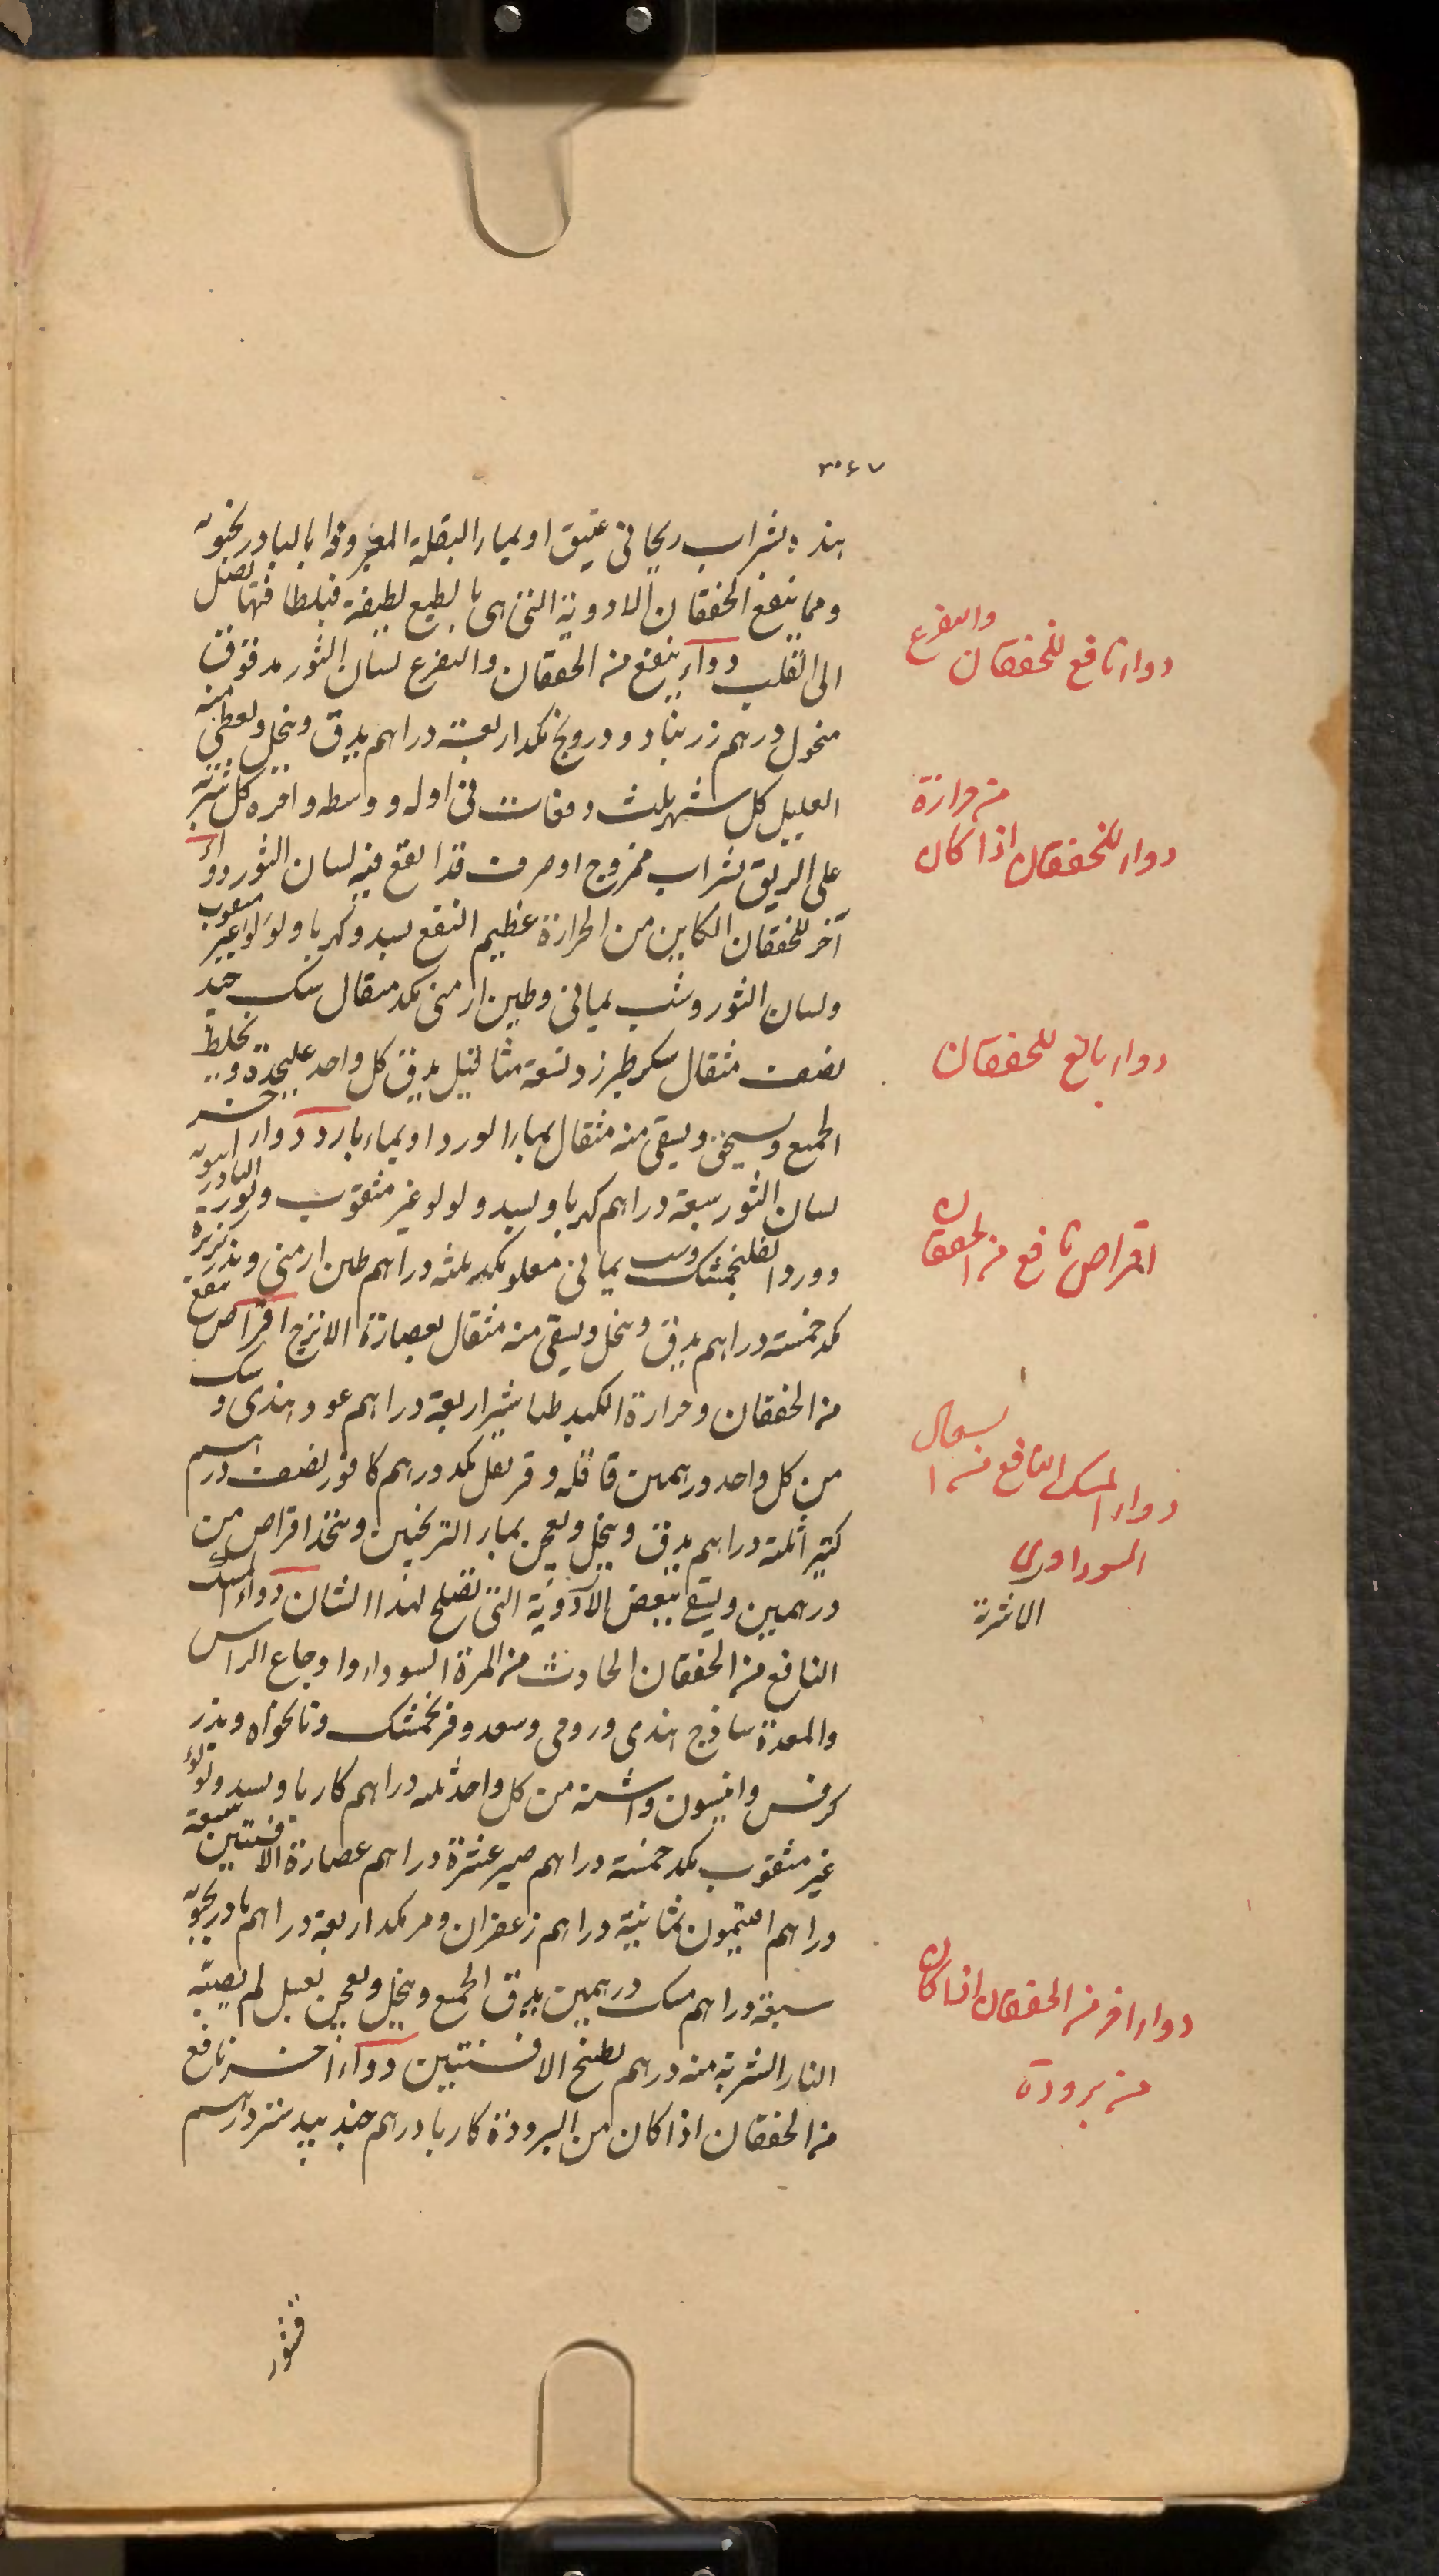 ٣٠٤٧
هذه بشراب ريحانى عتيق او بماء البقلة المعروفة بالبادرنجبويه
ومما ينفع الخفقان الادوية التى هى بالطبع لطيفة فبلطافتها تصل
الى القلب دواء ينفع من الخفقان والتفزع لسان الثور مدقوق
منخول درهم زرنباد ودرونج مكد اربعة دراهم يدق وينخل ويعطى منه
العليل كل شهر ثلث دفعات فى اوله ووسطه واخره كل شربة
على الريق بشراب ممزوج او صرف قد انقع فيه لسان الثور دواء
آخر للخفقان الكاين من الحرارة عظيم النفع بسد وكهربا ولولوا غير مثقوب
ولسان الثور وشب يمانى وطين ارمنى مكد مثقال مسك جيد
نصف مثقال سكر طبرزد تسعة مثاقيل يدق كل واحد عليحدة ويخلط
الجميع ويسحق ويسقى منه مثقال بماء الورد او بماء بارد دواء اخر
لسان الثور سبعة دراهم كهربا وبسد ولولو غير مثقوب وبزر البادرنبويه
وورد الفلنجمشك وشب يمانى مغلو مكد ثلثه دراهم طين ارمنى وبذر كزبرة
مكد خمسة دراهم يدق وينخل ويسقى منه مثقال بعصارة الاترج اقراص ينفع
من الخفقان وحرارة الكبد طباشير اربعة دراهم عود هندى ومسك
من كل واحد درهمين قاقله وقرنفل مكد درهم كافور نصف درهم
كثيرا ثلثة دراهم يدق وينخل ويعجن بماء الترنجبين ويتخذ اقراص من
درهمين ويسقى ببعض الآدوية التى تصلح لهذا الشان دواء المسك
النافع من الخفقان الحادث من المرة السوداء واوجاع الراس
والمعدة ساذج هندى ورومى وسعد وفرنجمشك ونانخواه وبذر
كرفس وانيسون واشنة من كل واحد ثلثه دراهم كاربا وبسد ولولؤ
غير مثقوب مكد خمسة دراهم صبر عشرة دراهم عصارة الافسنتين سبعة
دراهم افتيمون ثمانية دراهم زعفران ومر مكد اربعة دراهم بادرنجبويه
سبعة دراهم مسك درهمين يدق الجميع وينخل ويعجن بعسل لم تصبه
النار الشربة منه درهم بطبخ الافسنتين دواء اخر نافع
من الخفقان اذا كان من البرودة كاربا درهم جندبيدستر درهم
قشور
دواء نافع للخفقان والتفزع
دواء للخفقان اذا كان من حرارة
دواء بالغ للخفقان
اقراص نافع من الخفقان
دواء المسك النافع من اسهال
السوداوى
الاشربة
دواء اخر من الخفقان اذا كان
من برودة